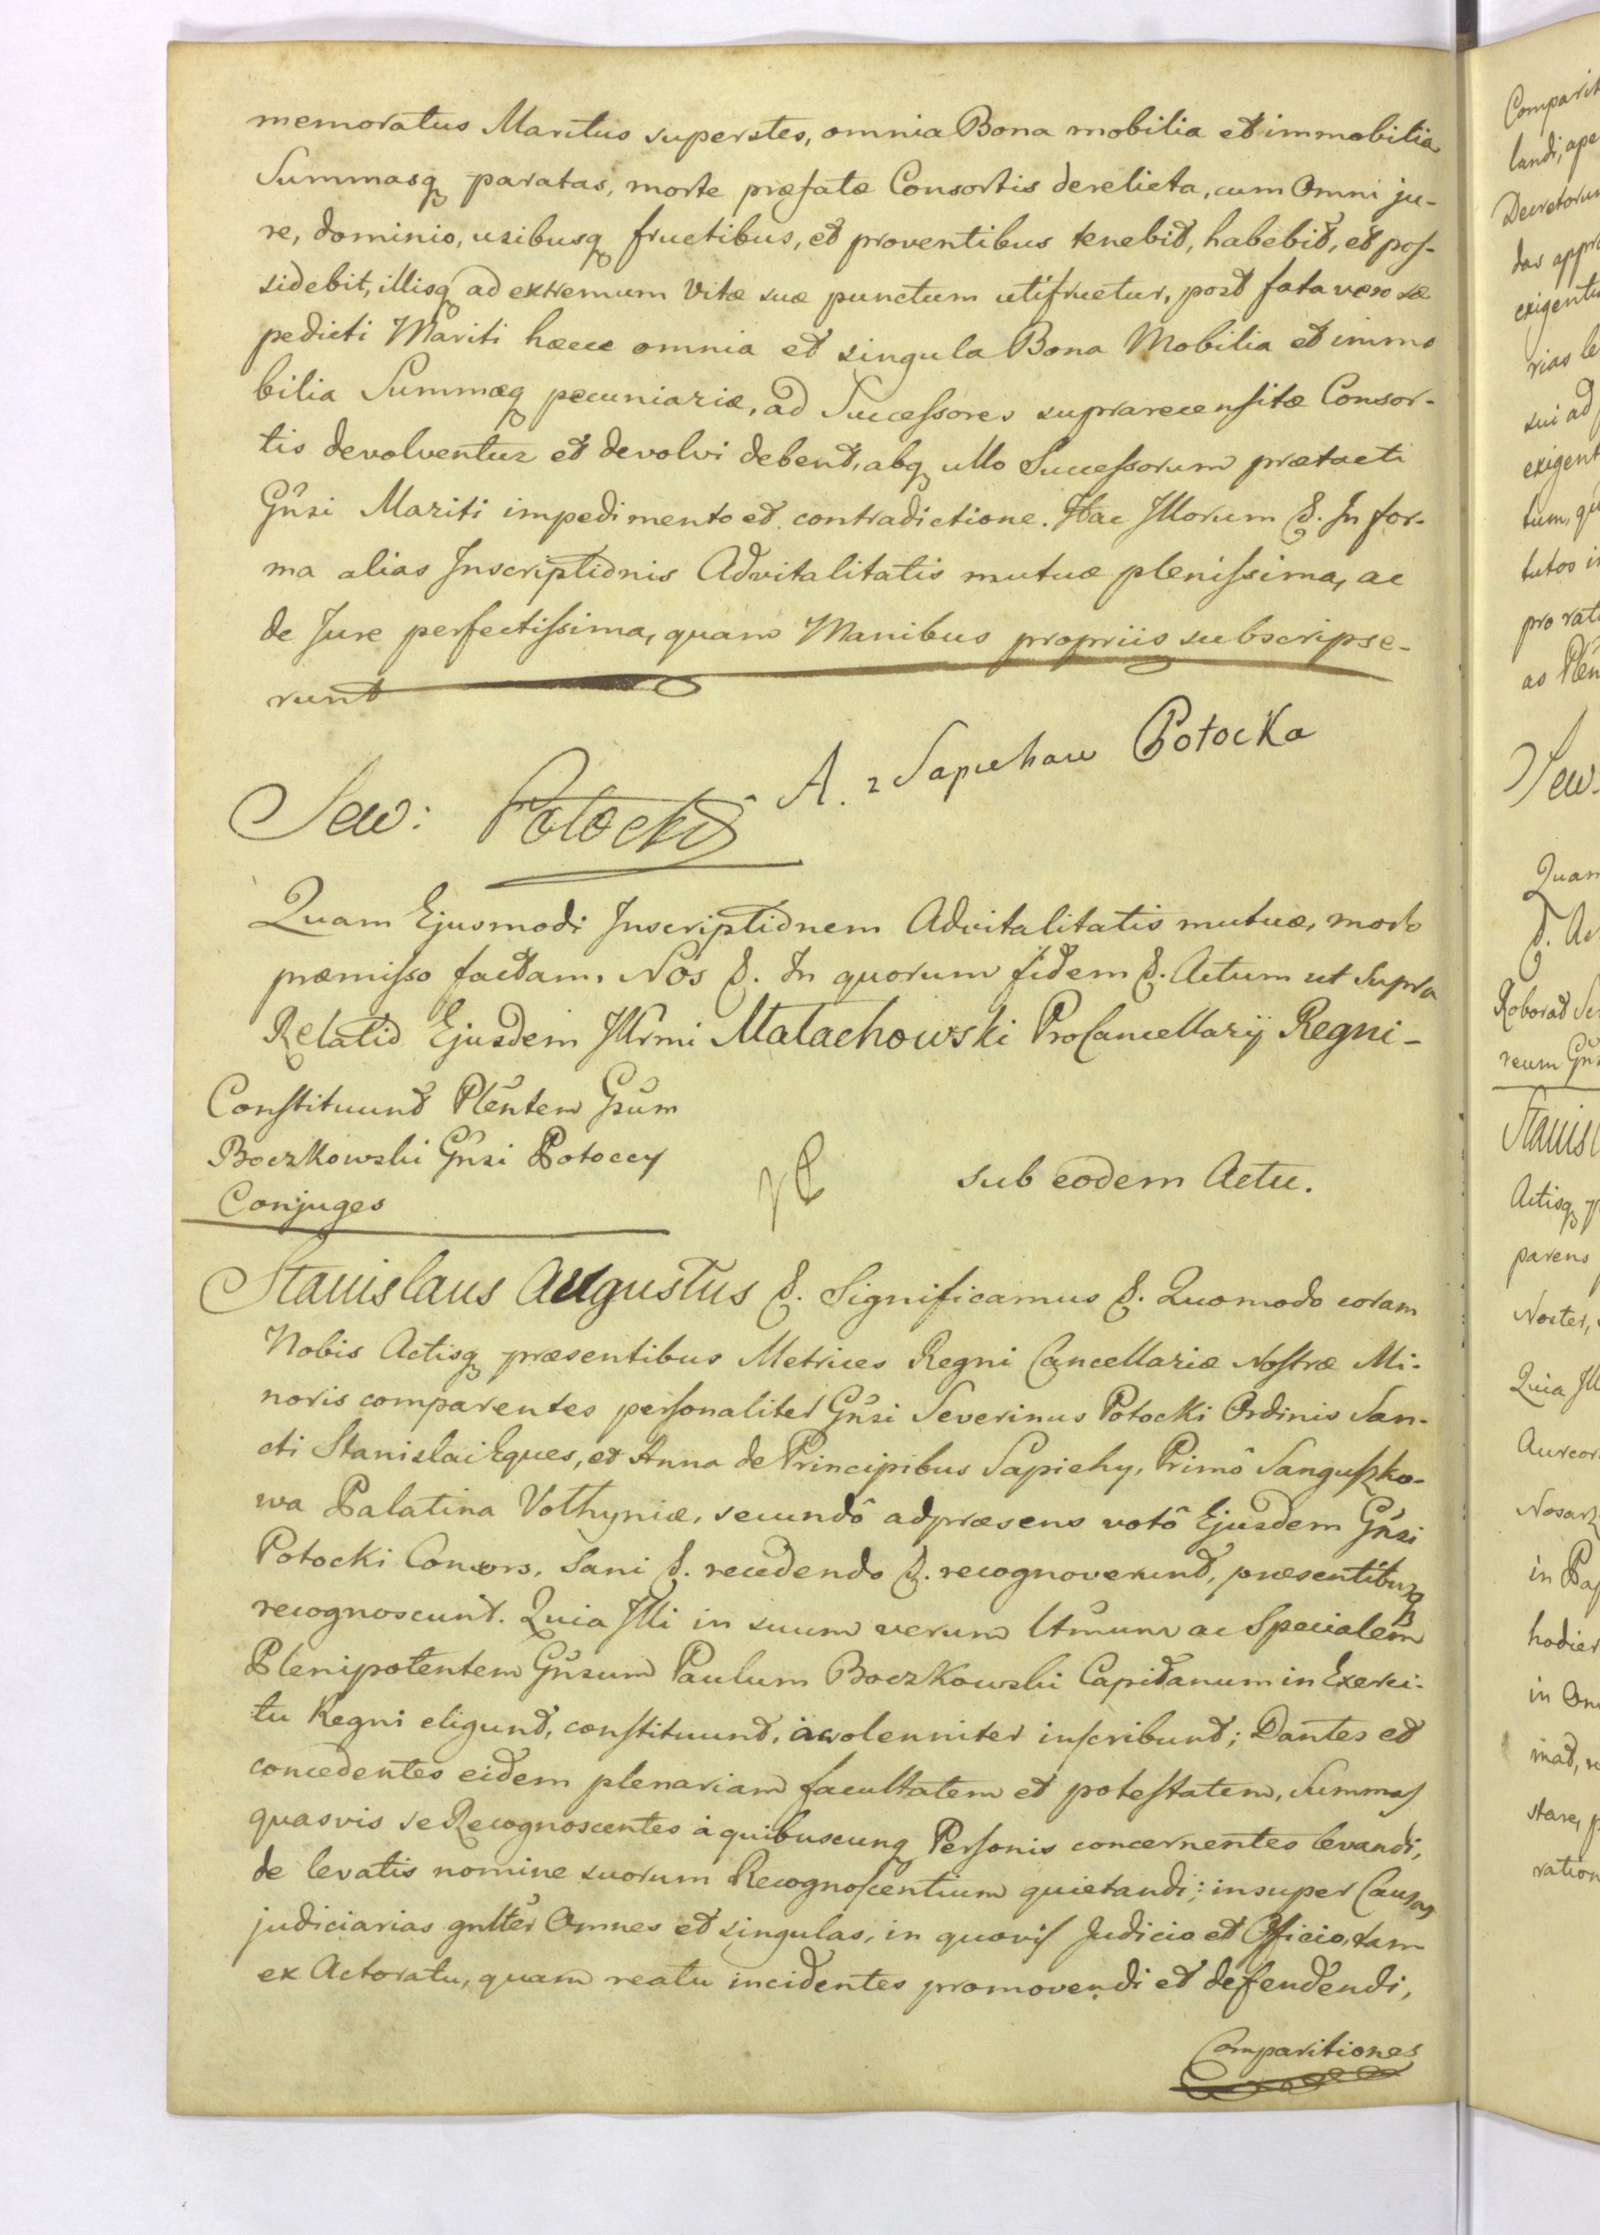 memoratus Maritus superstes, omnia Bona mobilia et immobilia
Summasq paratas, morte præfatæ Consortis derelicta, cum Omni ju-
re, dominio, usibusq fructibus, et proventibus tenebit, habebit, et pos-
sidebit, illisq ad extremum Vitæ suæ punctum utifruetur, post fata vero sæ
pedicti Mariti hæcce omnia et singula Bona Mobilia et immo
bilia Summæq pecuniariæ, ad Successores suprarecensitæ Consor-
tis devolventur et devolvi debent, absq ullo Successorum prætacti
Gnsi Mariti impedimento et contradictione. Hac Illorum &. In for-
ma alias Inscriptionis Advitalitatis mutuæ plenissima, ac
de Jure perfectissima, quam Manibus propriis subscripse-
runt
A. z Sapiehow Potocka
Sew: Potocki
Quam Ejusmodi Inscriptionem Advitalitatis mutuæ, modo
præmisso factam, Nos &. In quorum fidem &. Actum ut Supra
Relatio Ejusdem Illrmi Małachowski ProCancellarij Regni -
Constituunt Plentem Gsum
Boczkowski Gnsi Potoccy
Conjuges
sub eodem Actu.
Stanislaus Augustus &. Significamus &. Quomodo coram
Nobis Actisq præsentibus Metrices Regni Cancellariæ Nostræ Mi-
noris comparentes personaliter Gnsi Severinus Potocki Ordinis San-
cti Stanislai Eques, et Anna de Principibus Sapiehy, Primô Sanguszko-
wa Palatina Volhyniæ, secundô adpræsens votô Ejusdem Gnsi
Potocki Consors, Sani &. recedendo &. recognoverunt, præsentibusq
recognoscunt. Quia Illi in suum verum ltmum ac Specialem
Plenipotentem Gnsum Paulum Boczkowski Capitanum in Exerci-
tu Regni eligunt, constituunt, ac solenniter inscribunt; Dantes et
concedentes eidem plenariam facultatem et potestatem, Summas
quasvis se Recognoscentes à quibuscunq Personis concernentes levandi,
de levatis nomine suorum Recognoscentium quietandi; insuper Causas
judiciarias gnlter Omnes et singulas, in quovis Judicio et Officio, tam
ex Actoratu, quam reatu incidentes promovendi et defendendi,
Comparitiones